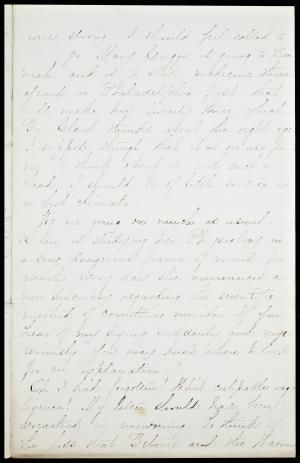 were strong, I should feel called to
go. Mary Griggs is going to Bur
mah, and is to study medicine three
years in Philadelphia first. that
will make her twenty three, which
Dr. Clark thinks about the right age.
I suppose, though, that it is no use for
my to think about it, with such a
head, I should be of little service in
a hot climate.
We are going on much as usual
Helen is studying her Physiology in
a very dangerous frame of mind, for
nearly every day she announces a
new discovery regarding the scientific
method of committing murder. If you
hear of my dying suddenly and mys-
teriously you may know where to look
for an explanation."
Oh I had forgotten! What culpable neg-
ligence! My letter should have been
encased in mourning. To think of
the loss that Beloit and the